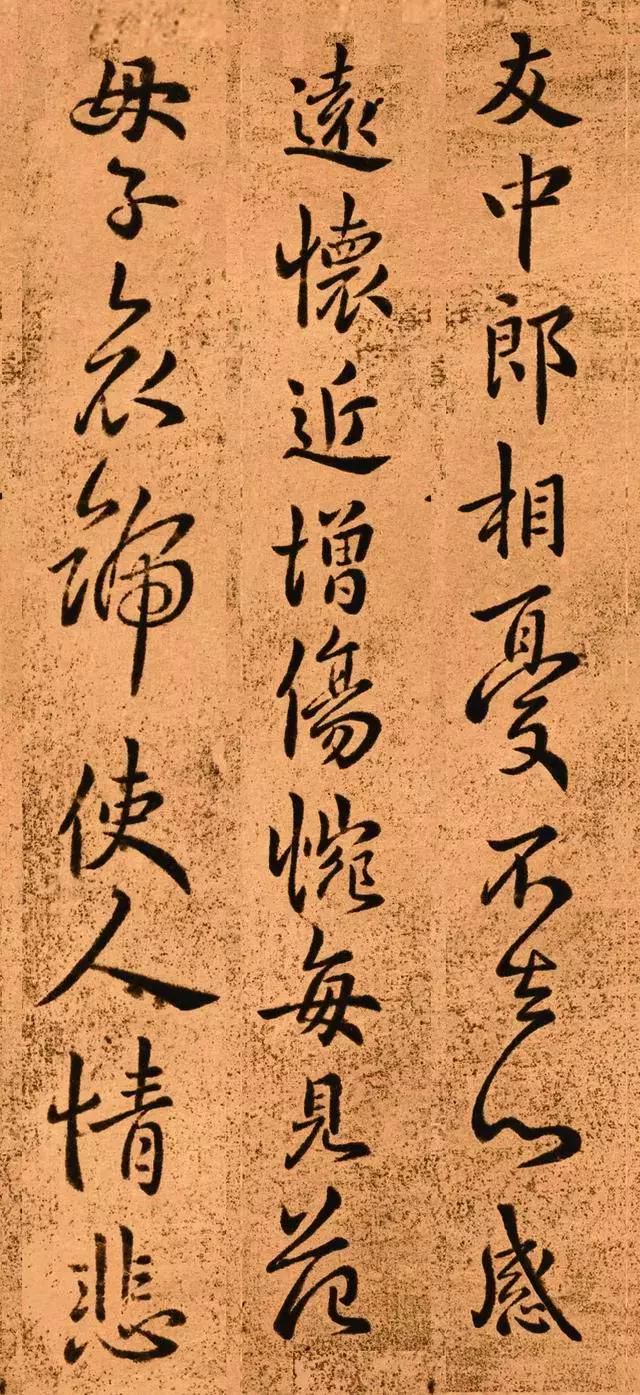 友中郎相憂不去心感
遠懷近增傷惋每見范
母子哀使人情悲